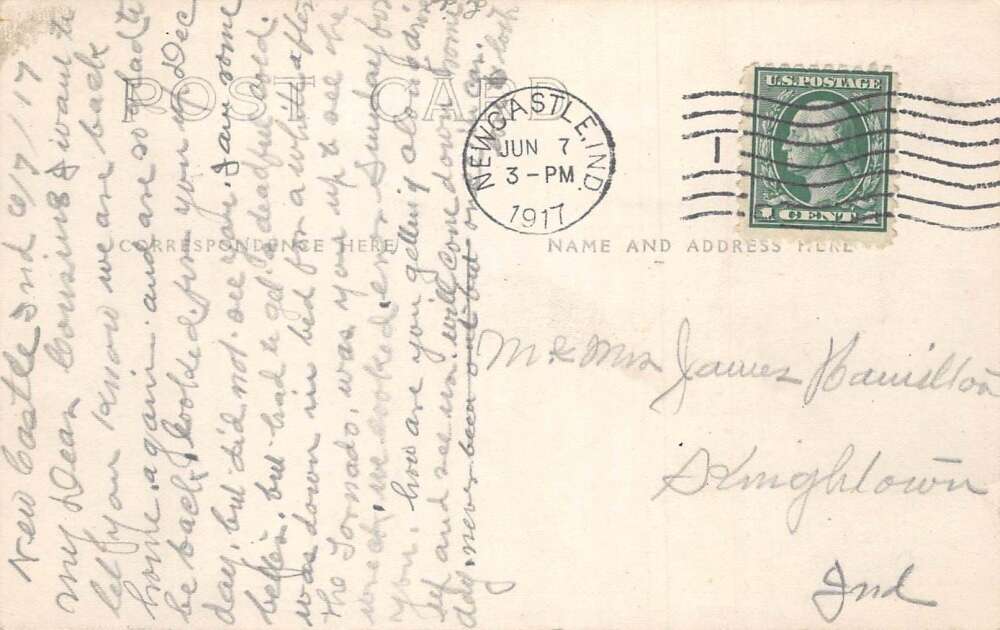 New Castle Ind 6/7/17
My Dear Cousins I want to
let you know we are back
home again and are so glad to
be back, looked for you up Dec
day, but did not see you. saw some
but had to get deadful cold
was down in bed for a whill after
the Tornado, was you up to see the
we looked for Sunday for
you, how are you getting along
and see us. will come down some
day, never been out but on in car.
look
POST CARD
CORRESPONDENCE HERE
NAME AND ADDRESS HERE
NEWCASTLE, IND.
JUN 7
3-PM
1917
1
U.S. POSTAGE
1 CENT 1
Mr & Mrs James Hamilton
Knightown
Ind